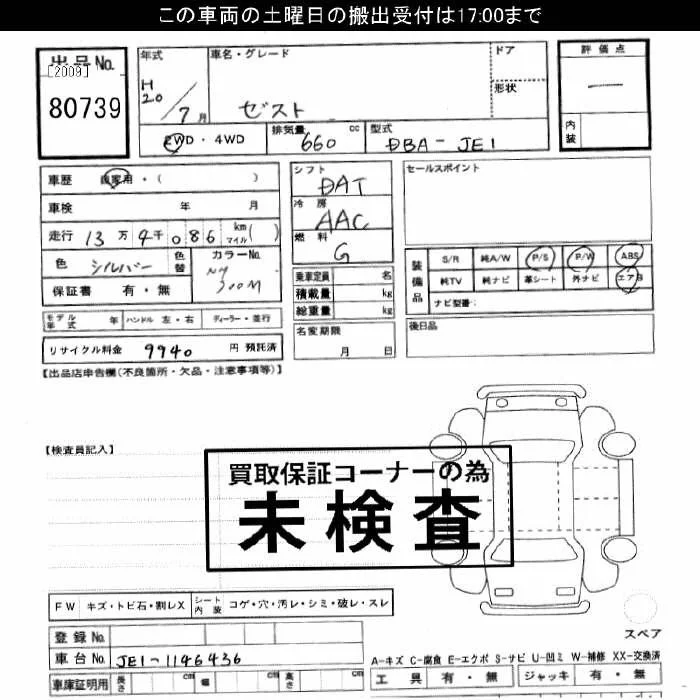 この車両の土曜日の搬出受付は17:00まで
出品No.
[2009]
80739
年式
H20/7月
車名・グレード
ゼスト
ドア
形状
評価点
内装
2WD・4WD
排気量 660 cc
型式 DBA-JE1
車歴 自家用・( )
車検 年 月
走行 13万4千086 km(マイル)
色 シルバー 色替
カラーNo.
NH
700M
保証書 有・無
シフト
DAT
冷房
AAC
燃料
G
乗車定員 名
積載量 kg
総重量 kg
名変期限
月 日
セールスポイント
装備品
S/R 純A/W P/S P/W ABS
純TV 純ナビ 革シート 外ナビ エアB
ナビ型番:
後日品
モデル年式 年 ハンドル 左・右 ディーラー・並行
リサイクル料金 9940 円 預託済
【出品店申告欄(不良箇所・欠品・注意事項等)】
【検査員記入】
買取保証コーナーの為
未検査
FW キズ・トビ石・割レX シート内装 コゲ・穴・汚レ・シミ・破レ・スレ
登録No.
車台No. JE1-1146436
車庫証明用 長さ cm 幅 cm 高さ cm
スペア
A-キズ C-腐食 E-エクボ S-サビ U-凹ミ W-補修 XX-交換済
工具 有・無 ジャッキ 有・無